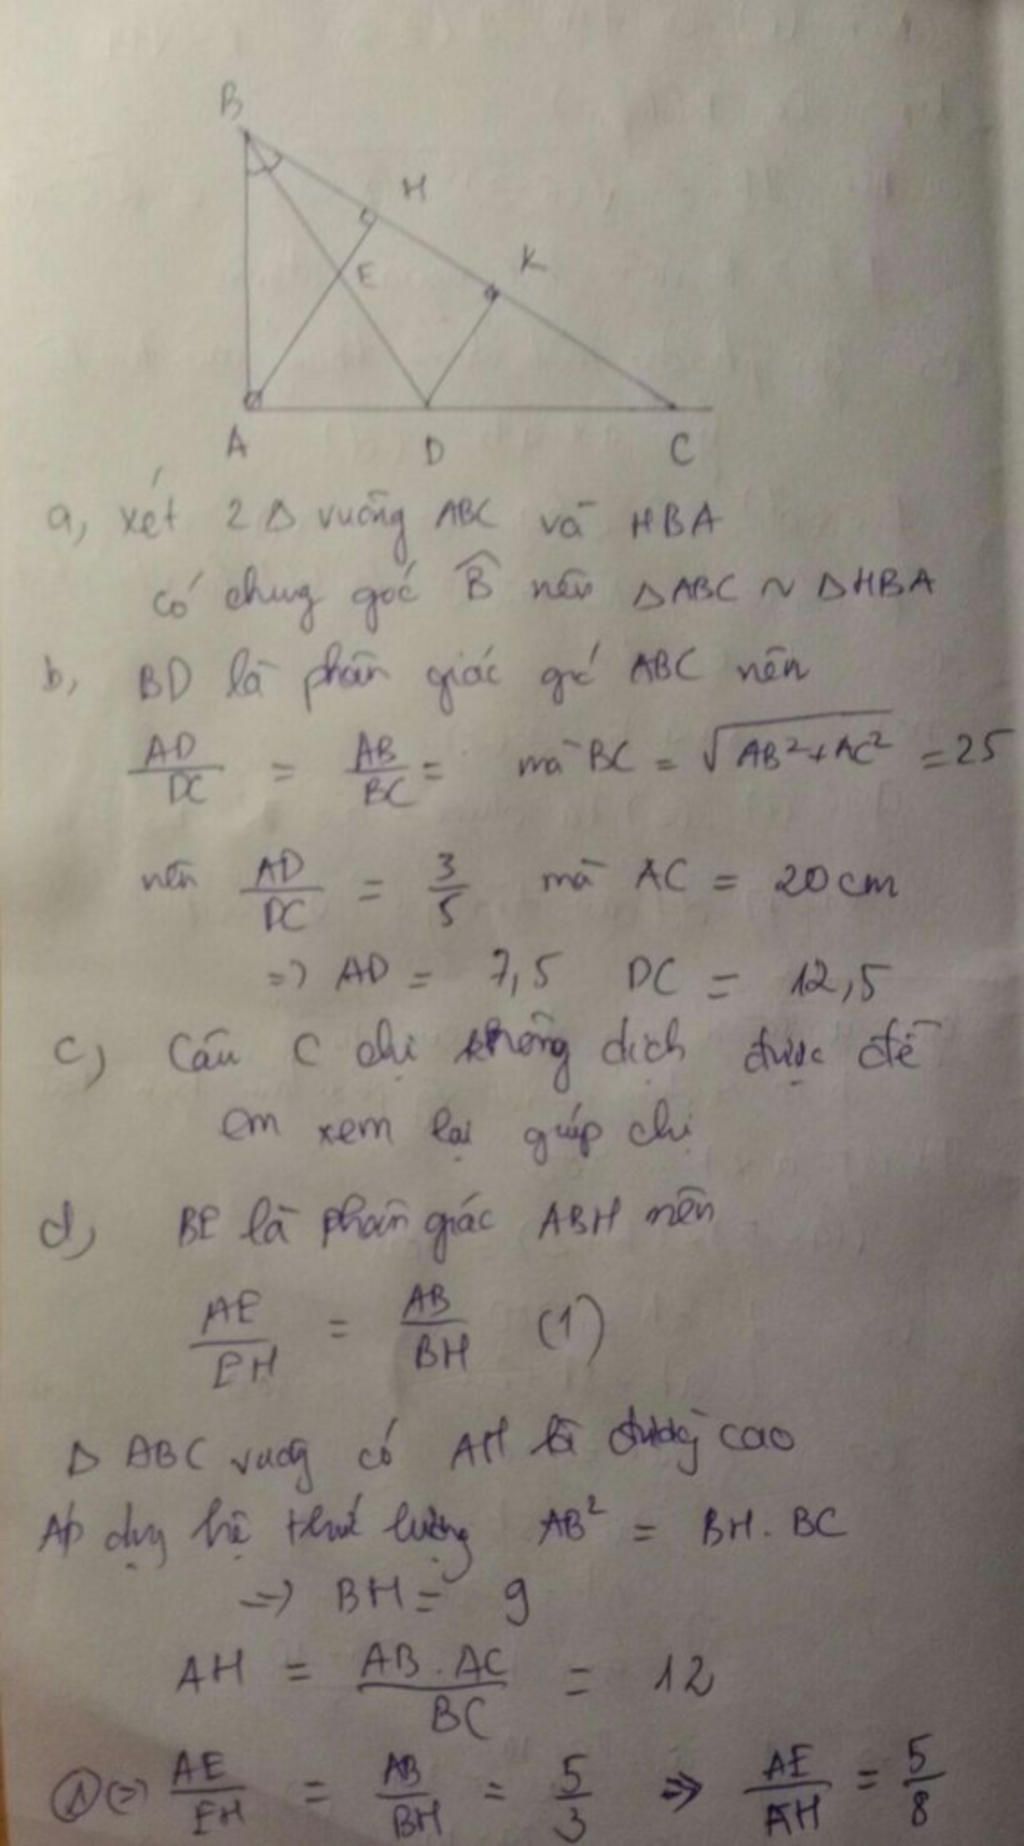 B
H
E
K
A
D
C
a, xét 2 Δ vuông ABC và HBA
có chung góc B̂ nên ΔABC ~ ΔHBA
b, BD là phân giác gć ABC nên
AD/DC = AB/BC = mà BC = √(AB²+AC²) = 25
nên AD/DC = 3/5 mà AC = 20cm
=> AD = 7,5 DC = 12,5
c) Câu C chị không dịch được đề
em xem lại giúp chị
d) BE là phân giác ABH nên
AE/EH = AB/BH (1)
Δ ABC vuông có AH là đường cao
Áp dụng hệ thức lượng AB² = BH.BC
=> BH = 9
AH = AB.AC/BC = 12
① (=) AE/EH = AB/BH = 5/3 => AE/AH = 5/8